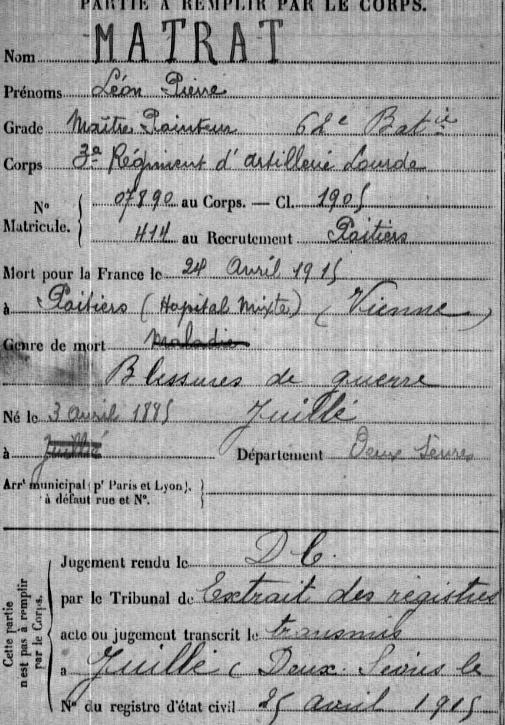 PARTIE À REMPLIR PAR LE CORPS.
Nom MATRAT
Prénoms Léon Pierre
Grade Maître Pointeur 62e Batie
Corps 3e Régiment d'artillerie Lourde
No Matricule. 07890 au Corps. — Cl. 1905
414 au Recrutement Poitiers
Mort pour la France le 24 Avril 1915
à Poitiers (Hopital Mixte) (Vienne)
Genre de mort Maladie
Blessures de guerre
Né le 3 avril 1885 Juillé
à Juillé Département Deux Sèvres
Arrt municipal (pr Paris et Lyon), à défaut rue et No.
Cette partie n'est pas à remplir par le Corps.
Jugement rendu le D C.
par le Tribunal de Extrait des registres
acte ou jugement transcrit le transmis
à Juillé (Deux-Sèvres le
No du registre d'état civil 25 avril 1915